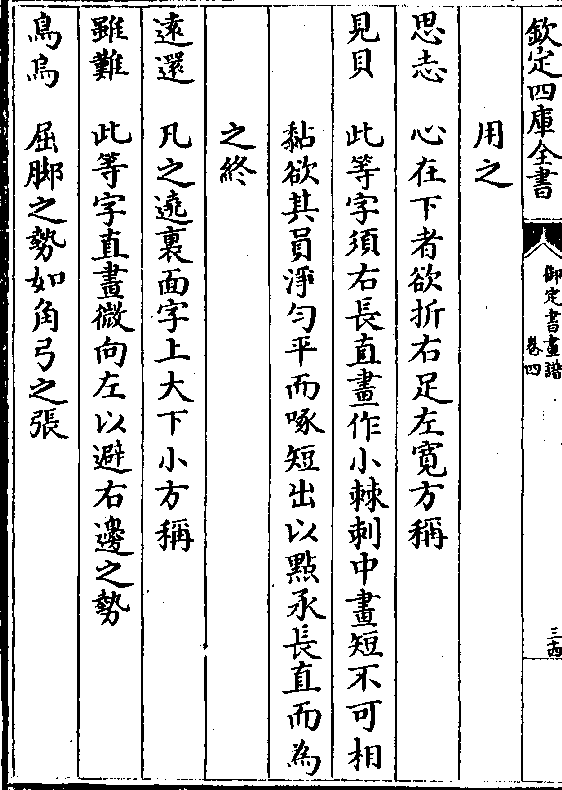 欽定四庫全書
御定書畫譜
卷四
三十四
用之
思志 心在下者欲折右足左寬方稱
見貝 此等字須右長直畫作小棘刺中畫短不可相
黏欲其員淨勻平而啄短出以點承長直而為
之終
遠還 凡之遶裏面字上大下小方稱
雖難 此等字直畫微向左以避右邊之勢
鳥烏 屈脚之勢如角弓之張